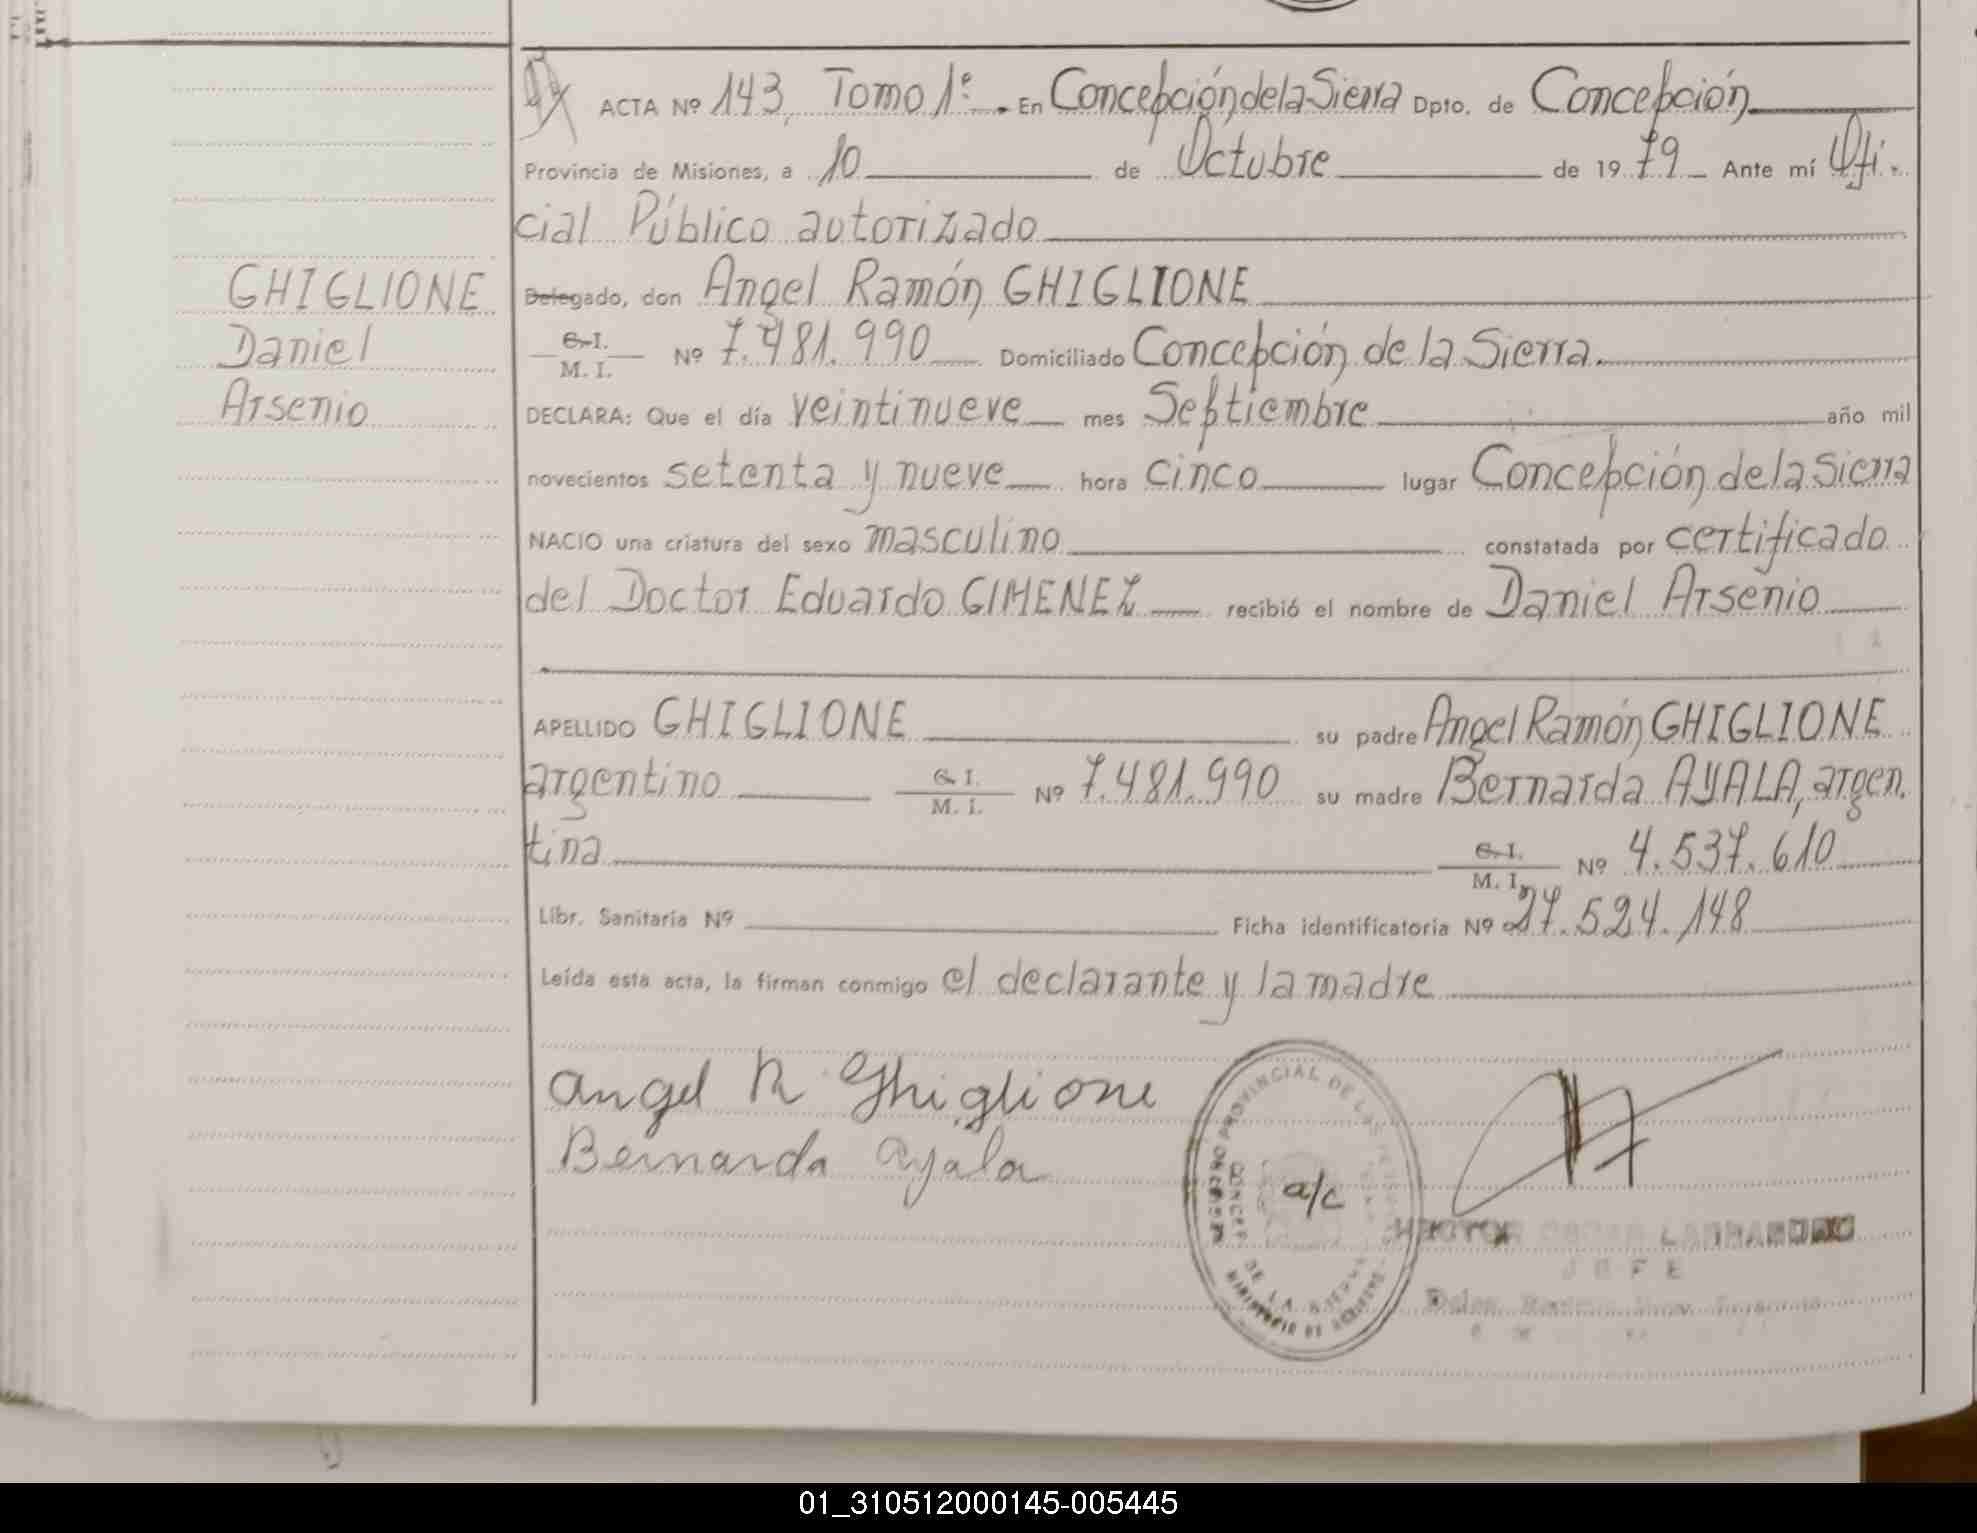 ACTA Nº 143, Tomo 1º. En Concepción de la Sierra Dpto. de Concepción
Provincia de Misiones, a 10 de Octubre de 1979 Ante mí Ofi-
cial Público autorizado
GHIGLIONE
Delegado, don Angel Ramón GHIGLIONE
Daniel
C. I.
M. I. Nº 7.481.990 Domiciliado Concepción de la Sierra.
Arsenio
DECLARA: Que el día veintinueve mes Septiembre año mil
novecientos setenta y nueve hora cinco lugar Concepción de la Sierra
NACIO una criatura del sexo masculino constatada por certificado
del Doctor Eduardo GIMENEZ recibió el nombre de Daniel Arsenio
APELLIDO GHIGLIONE su padre Angel Ramón GHIGLIONE
argentino C. I. M. I. Nº 7.481.990 su madre Bernarda AYALA, argen.
tina C. I. M. I. Nº 4.537.610
Libr. Sanitaria Nº Ficha identificatoria Nº 27.524.148
Leída esta acta, la firman conmigo el declarante y la madre
Angel R Ghiglione
Bernarda Ayala
PROVINCIAL DE LAS
CONCEP. DE LA SIERRA
MINISTERIO DE GOBIERNO
a/c
HECTOR OSCAR
JEFE
01_310512000145-005445